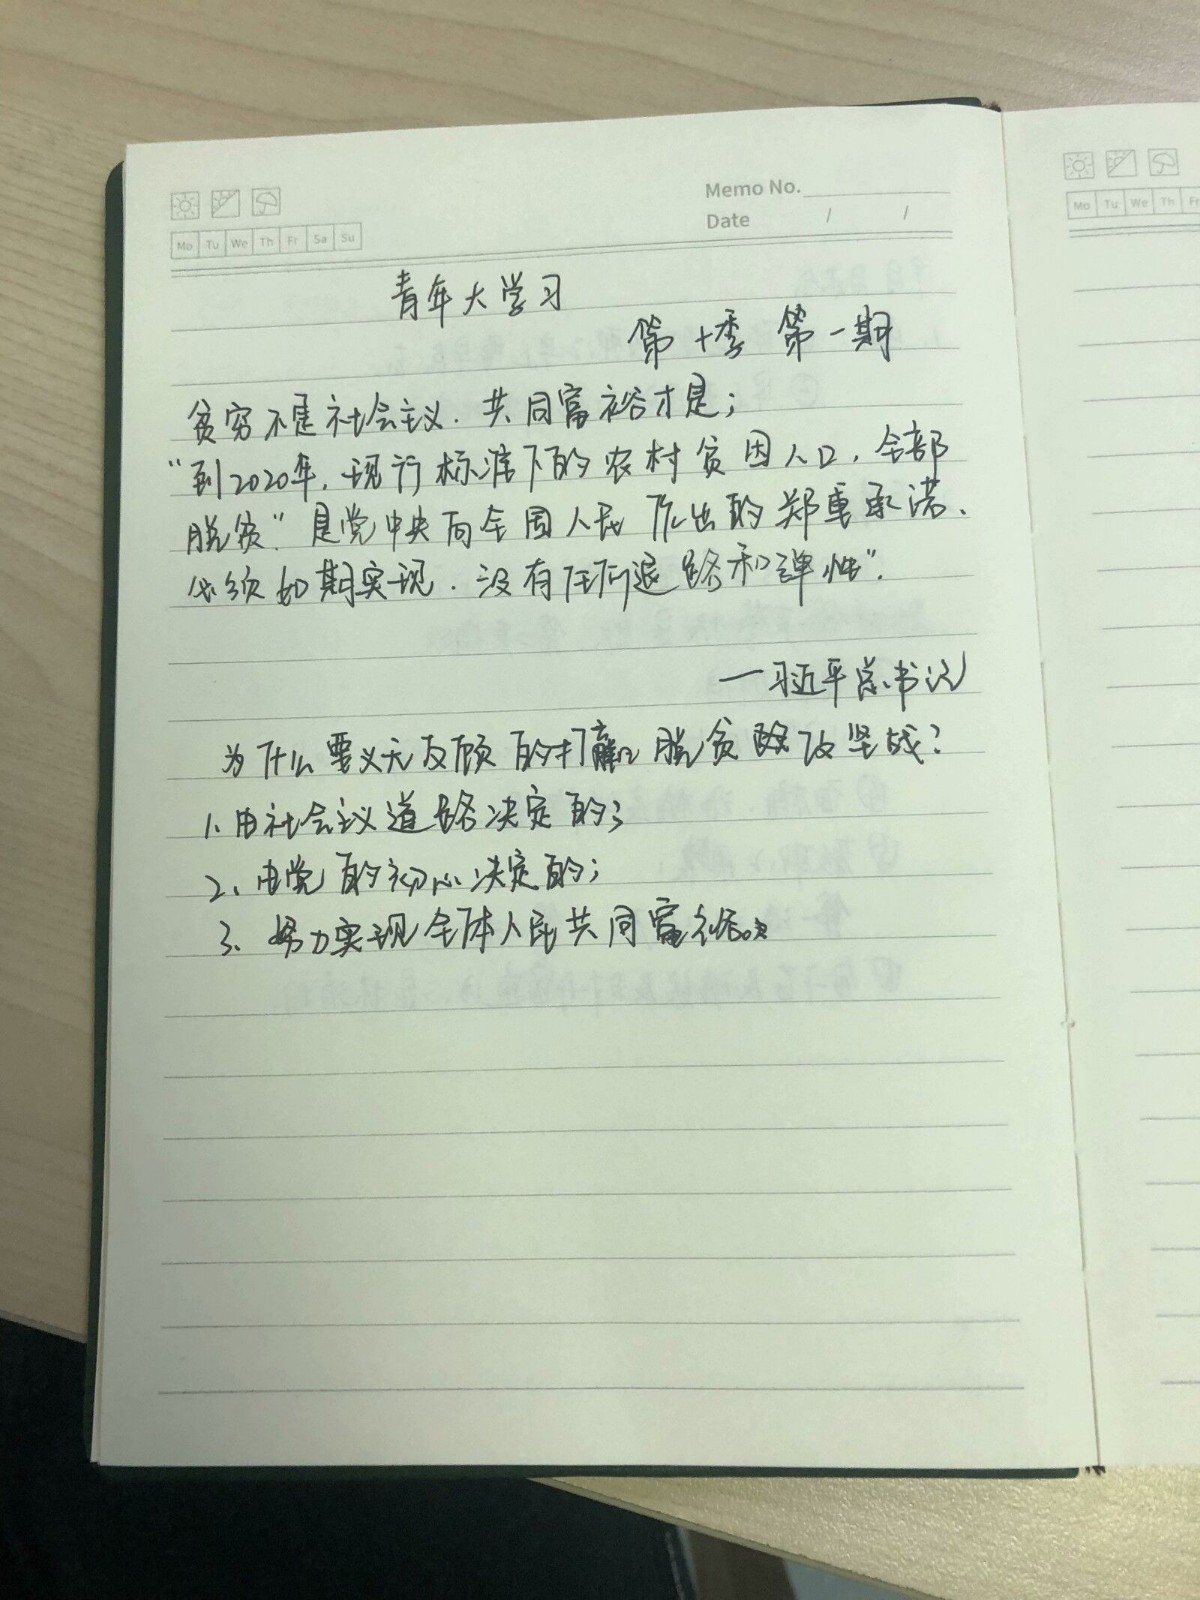 Memo No.
Date / /
Mo Tu We Th Fr Sa Su
Mo Tu We Th Fr
青年大学习
第十季 第一期
贫穷不是社会主义.共同富裕才是;
"到2020年,现行标准下的农村贫困人口,全部
脱贫"是党中央向全国人民作出的郑重承诺.
必须如期实现.没有任何退路和弹性".
—习近平总书记
为什么要义无反顾的打赢脱贫攻坚战?
1.由社会主义道路决定的;
2.由党的初心决定的;
3.努力实现全体人民共同富裕。